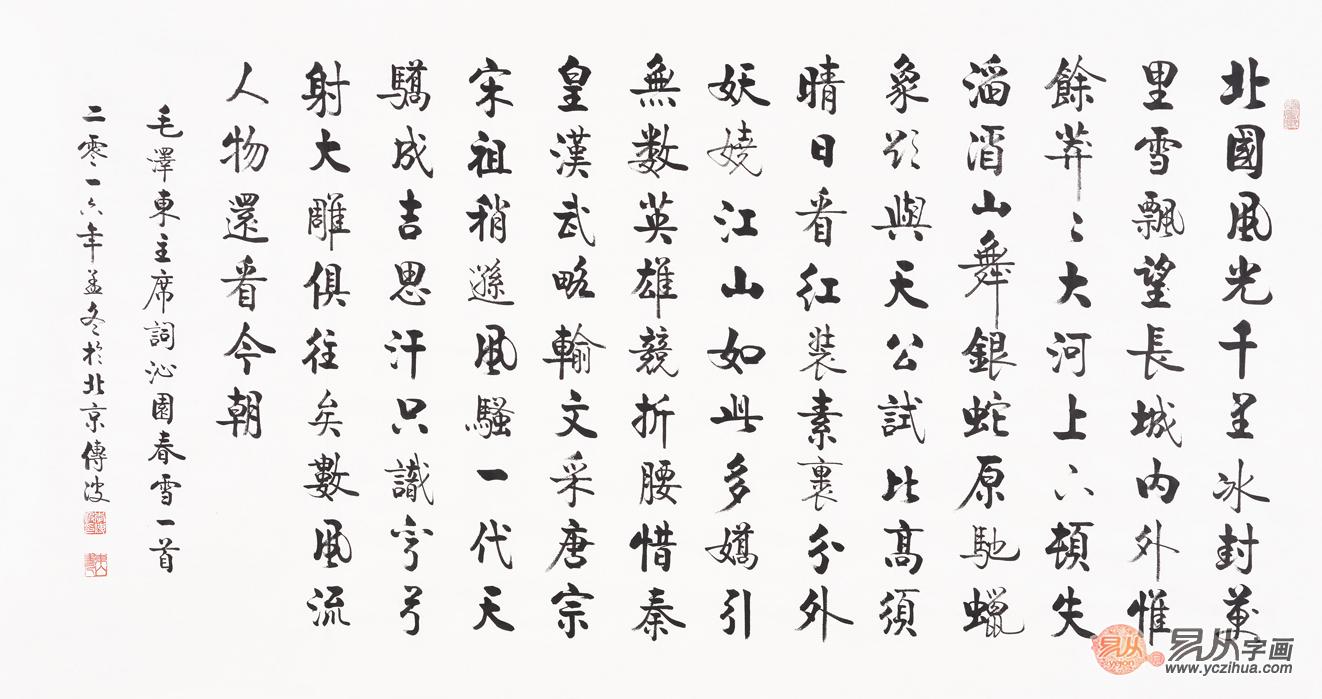 北國風光千里冰封萬
里雪飄望長城內外惟
餘莽〻大河上下頓失
滔滔山舞銀蛇原馳蠟
象欲與天公試比高須
晴日看紅裝素裹分外
妖嬈江山如此多嬌引
無数英雄競折腰惜秦
皇漢武略輸文采唐宗
宋祖稍遜風騷一代天
驕成吉思汗只識彎弓
射大雕俱往矣數風流
人物還看今朝
毛澤東主席詞沁園春雪一首
二零一六年孟冬於北京傳波
易从字画
www.yczihua.com